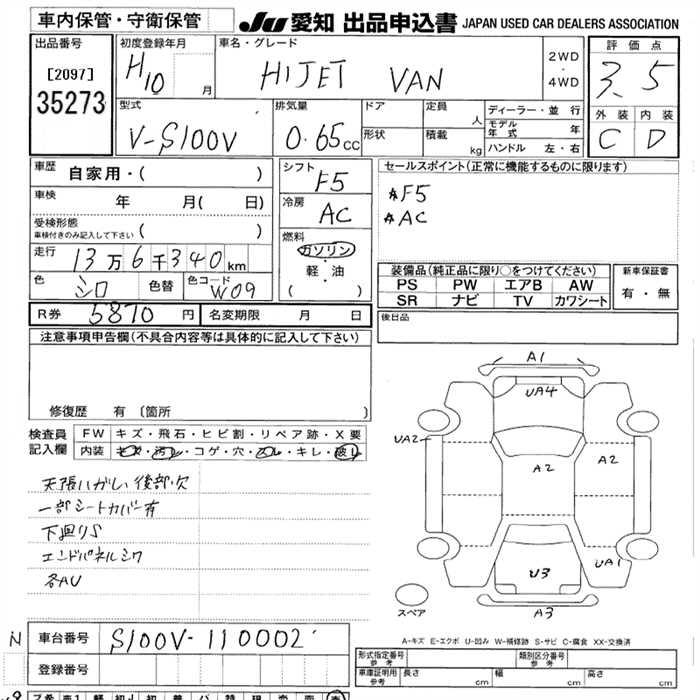 車内保管・守衛保管
JU 愛知 出品申込書 JAPAN USED CAR DEALERS ASSOCIATION
出品番号
[2097]
35273
初度登録年月
H10 月
車名・グレード
HIJET VAN
2WD
・
4WD
評価点
3.5
外装 内装
C D
型式
V-S100V
排気量
0.65cc
ドア
形状
定員
人
積載
kg
ディーラー・並行
モデル年式 年
ハンドル 左・右
車歴
自家用・( )
車検
年 月( 日)
受検形態
車検付きのみ記入して下さい ( )
走行
13万6千340km
色
シロ
色替
色コード
W09
シフト
F5
冷房
AC
燃料
ガソリン
・
軽・油
( )
セールスポイント(正常に機能するものに限ります)
☆F5
☆AC
装備品(純正品に限り○をつけてください)
PS PW エアB AW
SR ナビ TV カワシート
新車保証書
有・無
R券 5870円
名変期限 月 日
後日品
注意事項申告欄(不具合内容等は具体的に記入して下さい)
修復歴 有 〔箇所 〕
検査員記入欄
FW キズ・飛石・ヒビ割・リペア跡・X要
内装 キズ・汚れ・コゲ・穴・スレ・キレ・破レ
天張ハガレ 後部欠
一部シートカバー有
下廻りS
エンドパネルシワ
各AU
A1
UA4
UA2
A2
A2
UA1
U3
A3
スペア
A-キズ E-エクボ U-凹み W-補修跡 S-サビ C-腐食 XX-交換済
N
車台番号 S100V-110002
登録番号
形式指定番号
参考
類別区分番号
参考
車庫証明用
参考
長さ cm 幅 cm 高さ cm